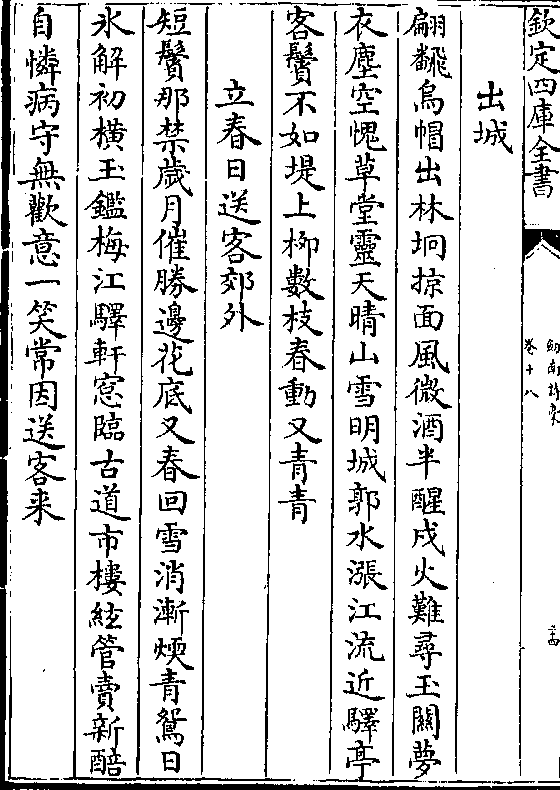 欽定四庫全書
劍南詩稾
卷十八
出城
翩翻烏帽出林坰掠面風微酒半醒戍火難尋玉關夢
衣塵空愧草堂靈天晴山雪明城郭水漲江流近驛亭
客鬢不如堤上栁數枝春動又青青
立春日送客郊外
短鬢那禁歲月催勝邊花底又春回雪消漸煗青鴛日
氷解初橫玉鑑梅江驛軒窓臨古道市樓絃管賣新醅
自憐病守無歡意一笑常因送客来